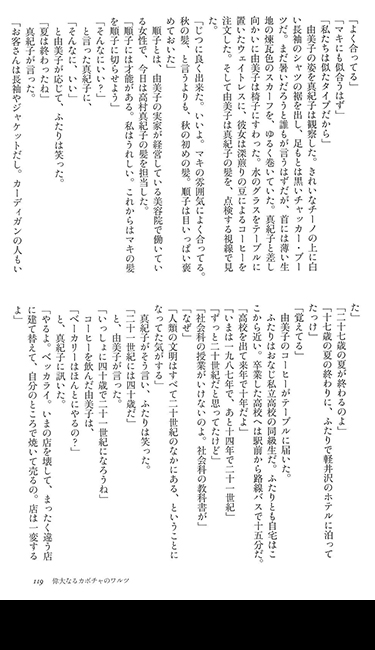 「よく合ってる」
「マキにも似合うはず」
「私たちは似たタイプだから」
　由美子の姿を真紀子は観察した。きれいなチーノの上に白
い長袖のシャツの裾を出し、足もとは黒いチャッカ・ブー
ツだ。まだ暑いだろうと誰もが言うはずだが、首には薄い生
地の煉瓦色のスカーフを、ゆるく巻いていた。真紀子と差し
向かいに由美子は椅子にすわった。水のグラスをテーブルに
置いたウェイトレスに、彼女は深煎りの豆によるコーヒーを
注文した。そして由美子は真紀子の髪を、点検する視線で見
た。
「じつに良く出来た。いいよ。マキの雰囲気によく合ってる。
秋の髪、と言うよりも、秋の初めの髪。順子は目いっぱい褒
めておいた」
　順子とは、由美子の実家が経営している美容院で働いてい
る女性で、今日は高村真紀子の髪を担当した。
「順子には才能がある。私はうれしい。これからはマキの髪
を順子に切らせよう」
「そんなにいい？」
　と言った真紀子に、
「そんなに、いい」
　と由美子が応じて、ふたりは笑った。
「夏は終わったね」
　真紀子が言った。
「お客さんは長袖やジャケットだし。カーディガンの人もい
た」
「二十七歳の夏が終わるのよ」
「十七歳の夏の終わりに、ふたりで軽井沢のホテルに泊って
たっけ」
「覚えてる」
　由美子のコーヒーがテーブルに届いた。
　ふたりはおなじ私立高校の同級生だ。ふたりとも自宅はこ
こから近い。卒業した高校へは駅前から路線バスで十五分だ。
「高校を出て来年で十年だよ」
「いまは一九八七年で、あと十四年で二十一世紀」
「ずっと二十世紀だと思ってたけど」
「社会科の授業がいけないのよ。社会科の教科書が」
「なぜ」
「人類の文明はすべて二十世紀のなかにある、ということに
なってた気がする」
　真紀子がそう言い、ふたりは笑った。
「二十一世紀には四十歳だ」
　と、由美子が言った。
「いっしょに四十歳で二十一世紀になろうね」
　コーヒーを飲んだ由美子は、
「ベーカリーはほんとにやるの？」
　と、真紀子に訊いた。
「やるよ。ベッカライ。いまの店を壊して、まったく違う店
に建て替えて、自分のところで焼いて売るの。店は一変する
よ」
119　偉大なるカボチャのワルツ